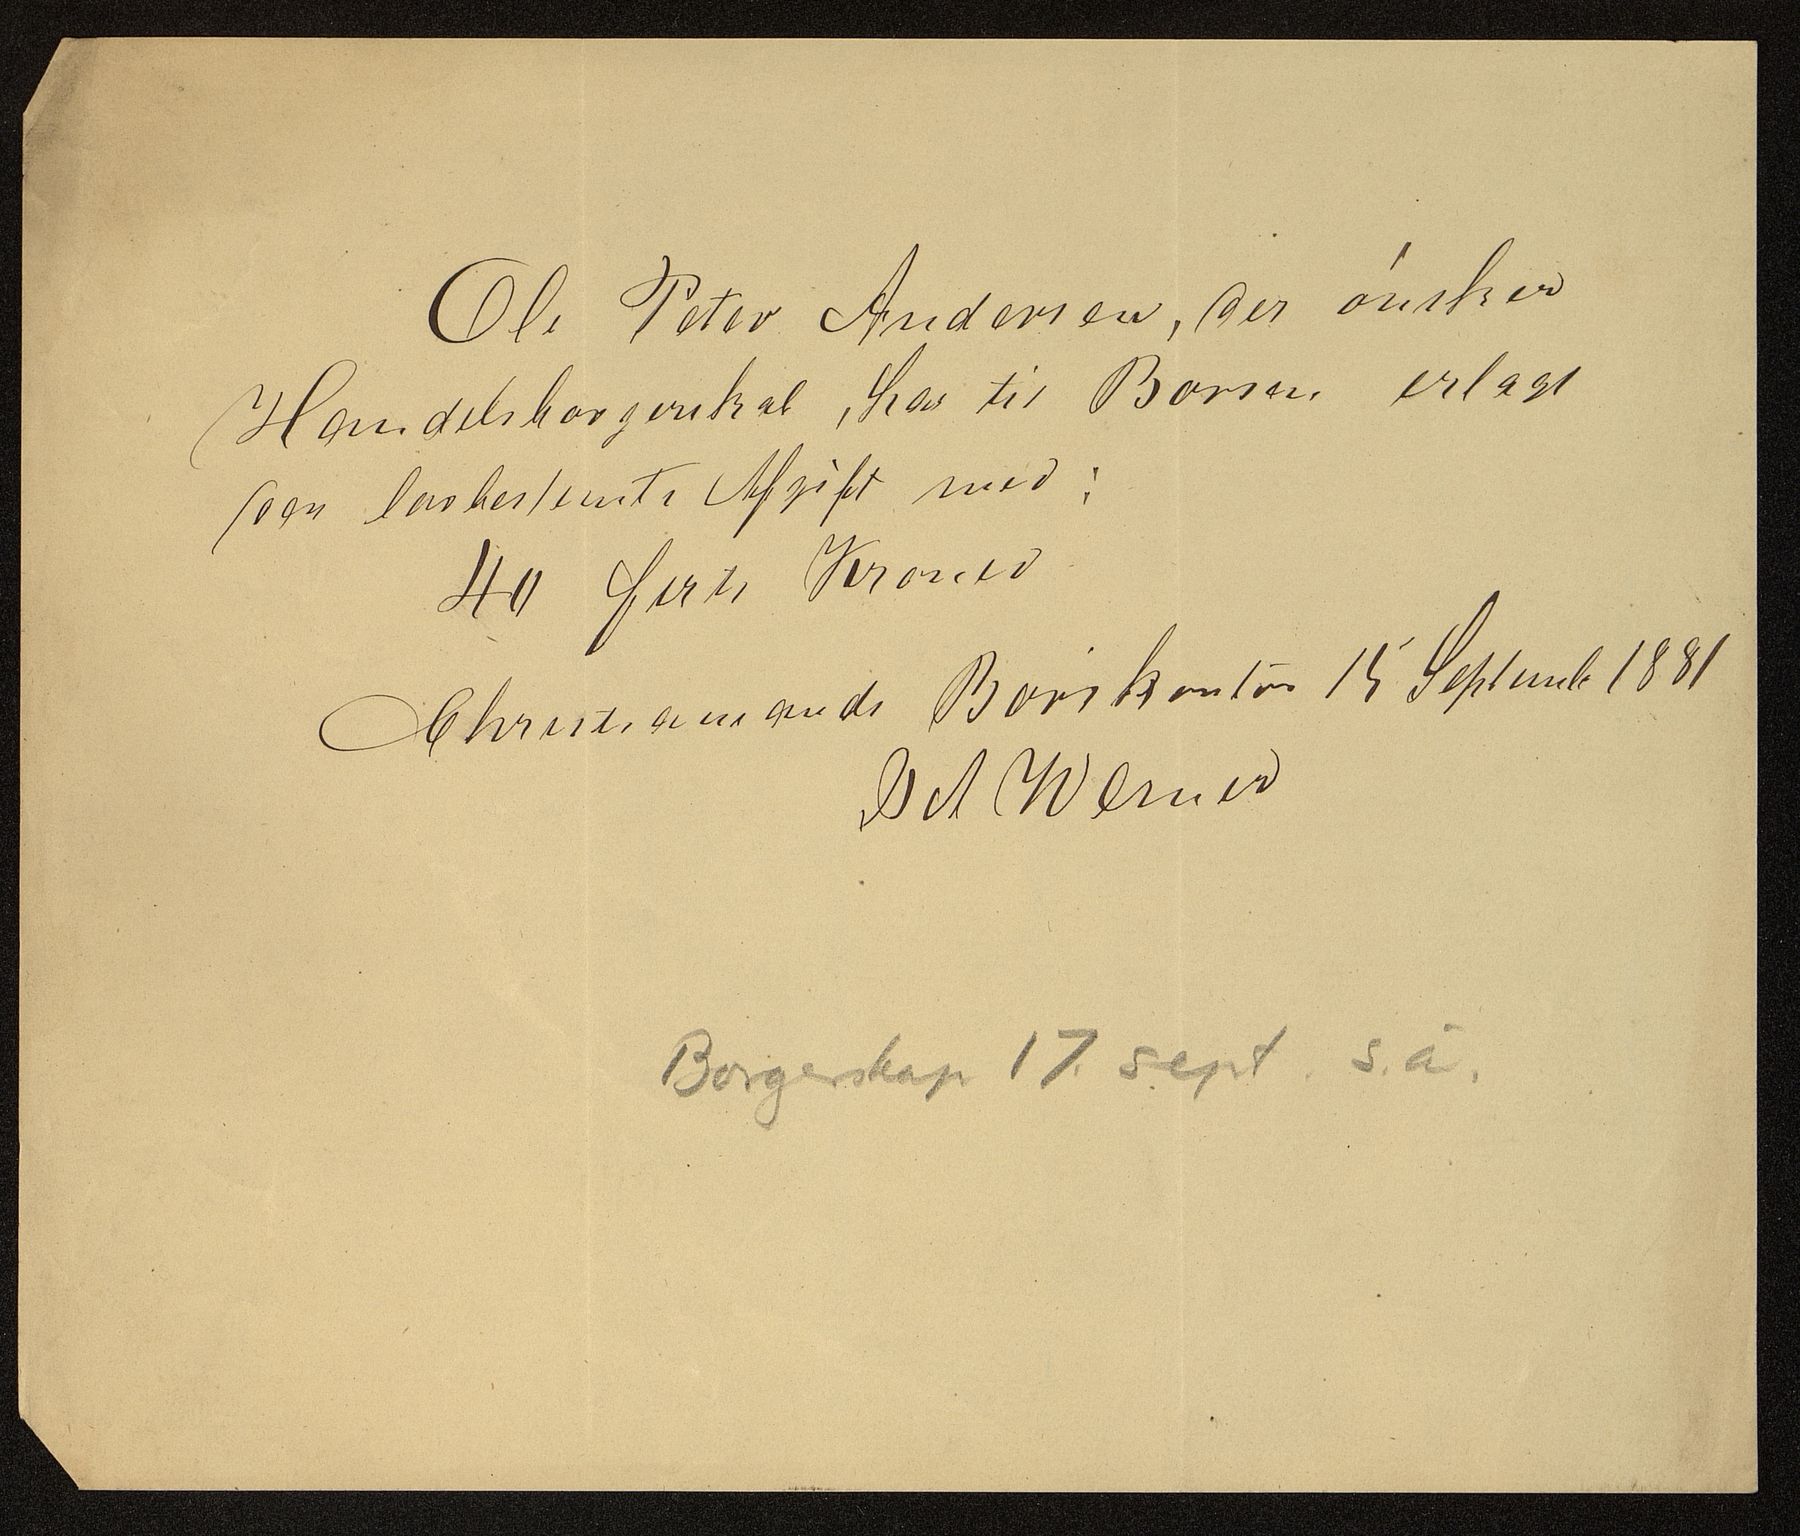 Ole Peter Andersen, der ønsker
Handelsborgerskab, har til Børsen erlagt
den lovbestemte Afgift med:
40 firti Kroner
Christiansands Børskontor 15 Septemb 1881
D A Werner
Borgerskap 17. sept. s.å.